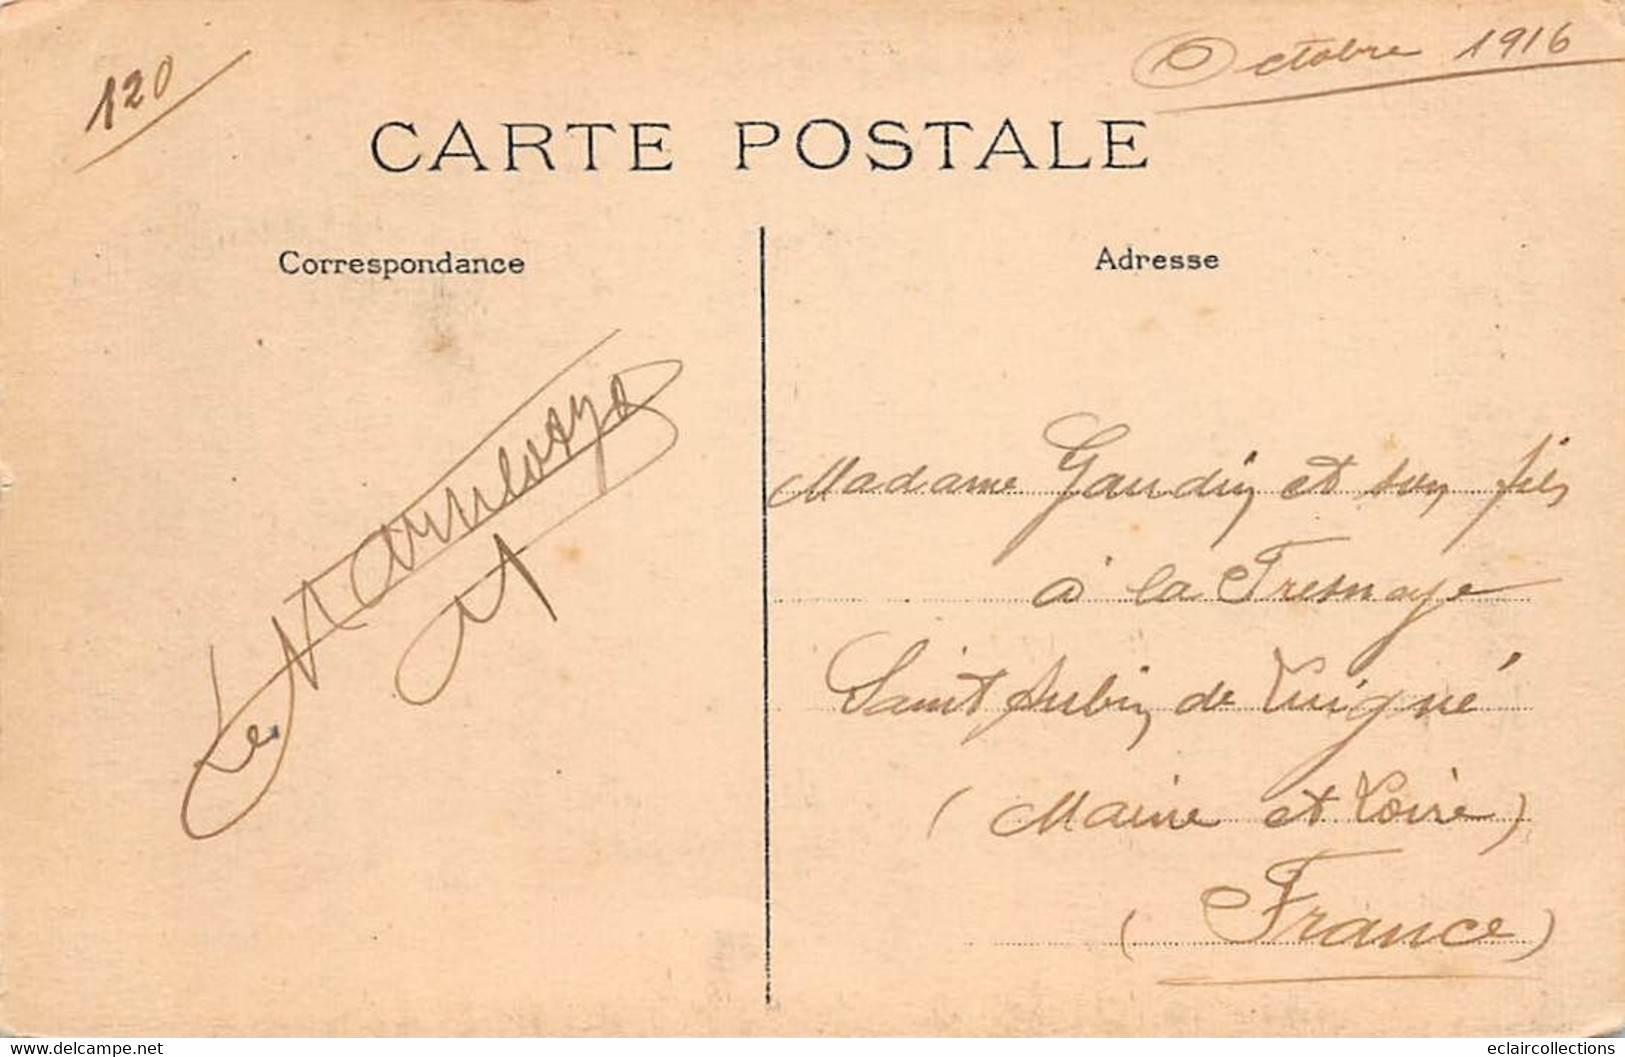 120
Octobre 1916
CARTE POSTALE
Correspondance
Adresse
Le
Madame Gaudin et son fils
à la Fresnaye
Saint Aubin de Luigné
(Maine et Loire)
(France)
www.delcampe.net
eclaircollections